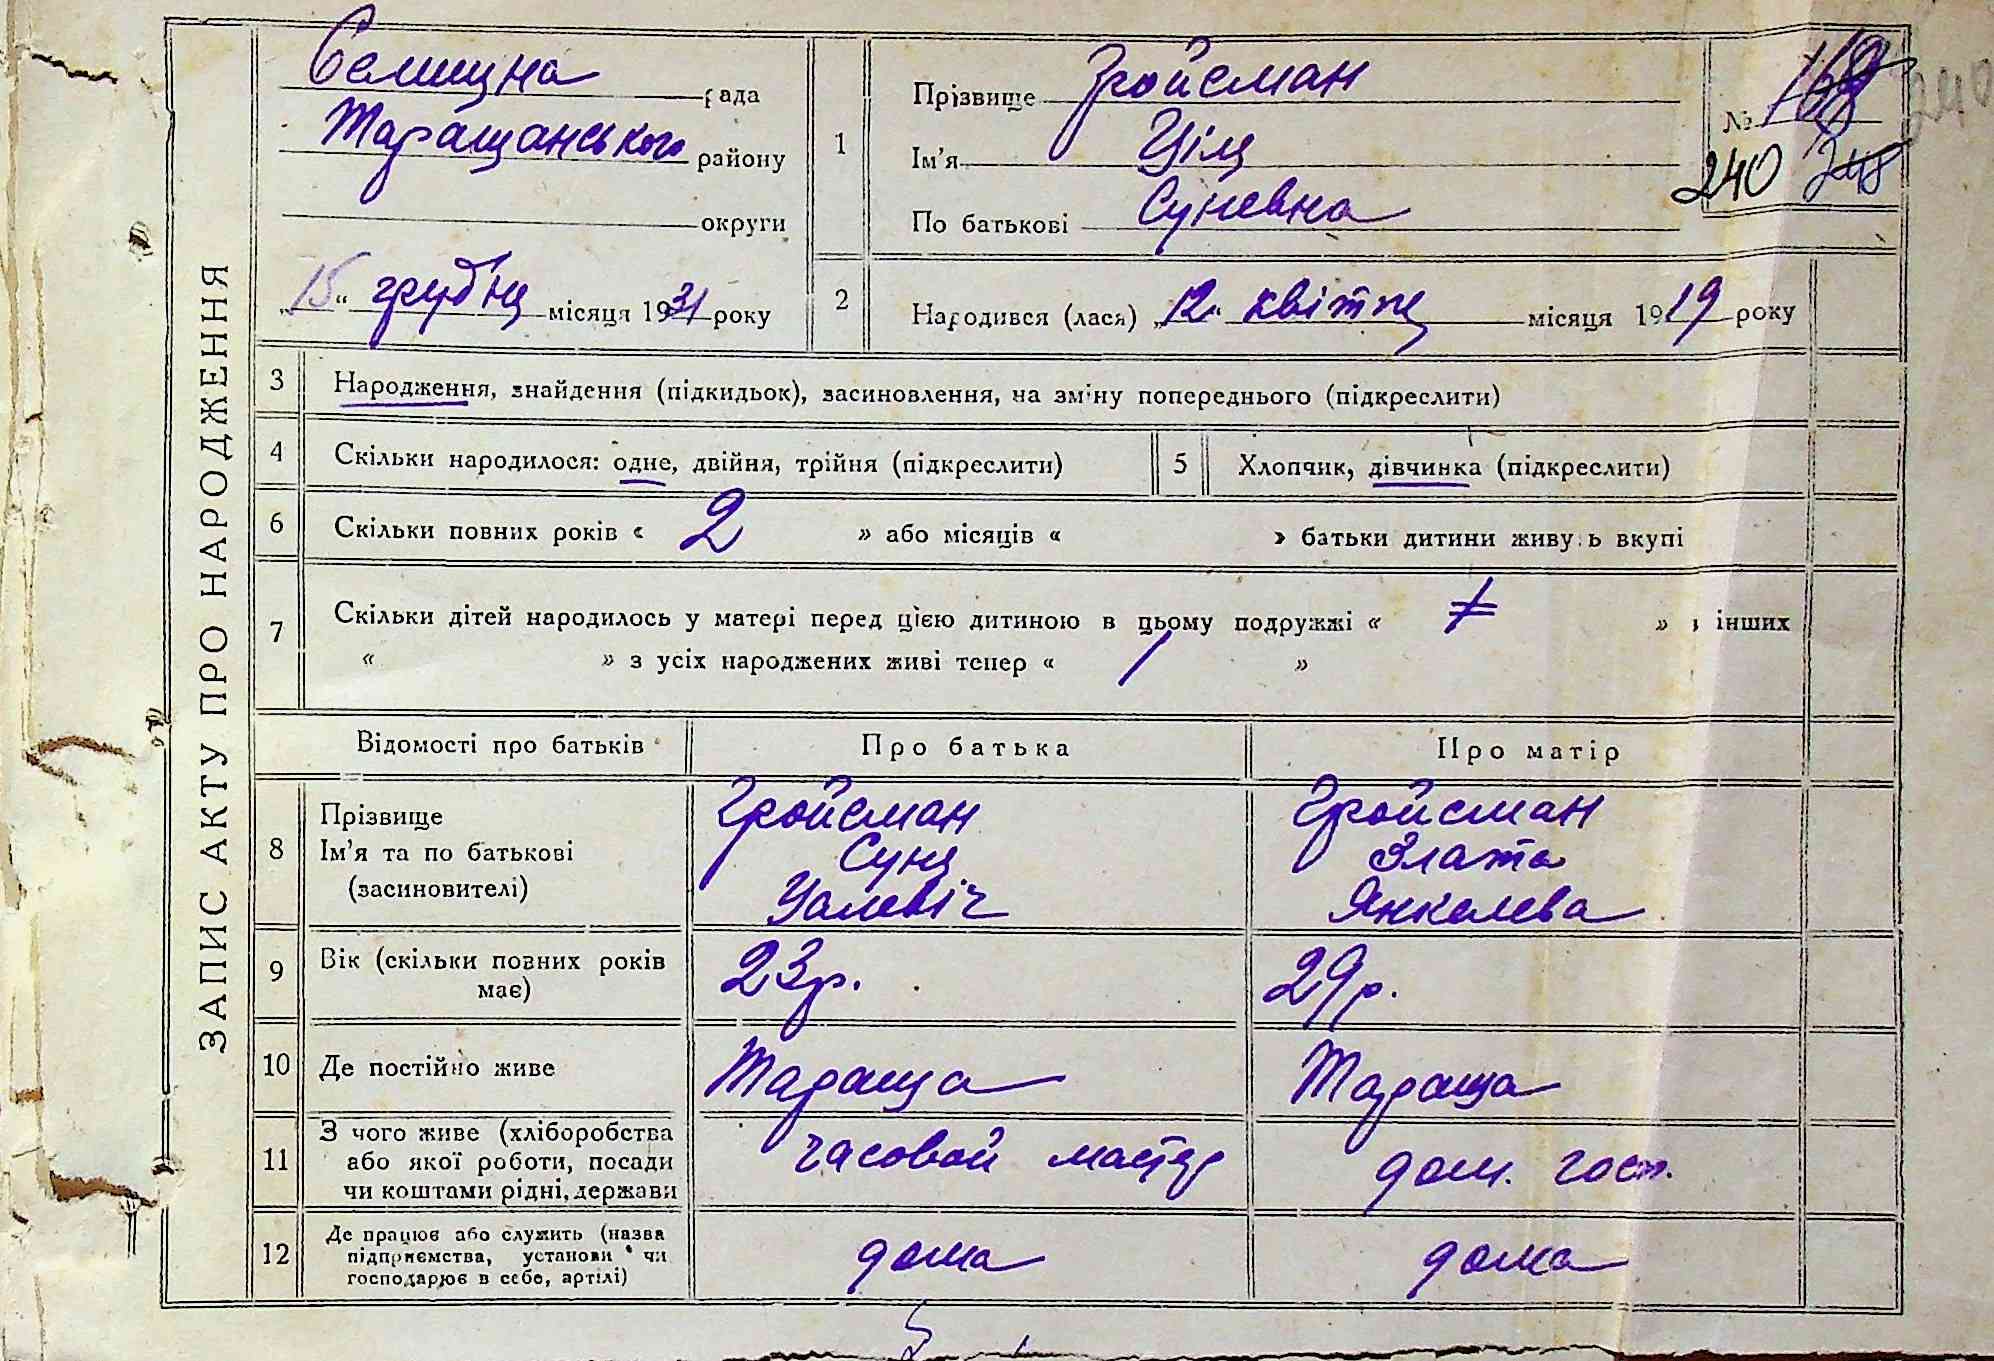 ЗАПИС АКТУ ПРО НАРОДЖЕННЯ
Селищна рада
Таращанського району
округи
„15“ грудня місяця 1931 року
1
Прізвище Гройсман
Ім'я Ціля
По батькові Суневна
№ 168
240 248
240
2
Народився (лася) „12“ квітня місяця 1919 року
3 Народження, знайдення (підкидьок), засиновлення, на зміну попереднього (підкреслити)
4 Скільки народилося: одне, двійня, трійня (підкреслити)
5 Хлопчик, дівчинка (підкреслити)
6 Скільки повних років « 2 » або місяців « » батьки дитини живуть вкупі
7 Скільки дітей народилось у матері перед цією дитиною в цьому подружжі « » з інших
« » з усіх народжених живі тепер « 1 »
Відомості про батьків Про батька Про матір
8
Прізвище
Ім'я та по батькові
(засиновителі)
Гройсман
Суня
Гройсман
Злата
Янкелева
9
Вік (скільки повних років
має)
23р.
29р.
10 Де постійно живе Тараща Тараща
11
З чого живе (хліборобства
або якої роботи, посади
чи коштами рідні, держави
часовой мастер
дом. госп.
12
Де працює або служить (назва
підприємства, установи чи
господарює в себе, артілі)
дома
дома